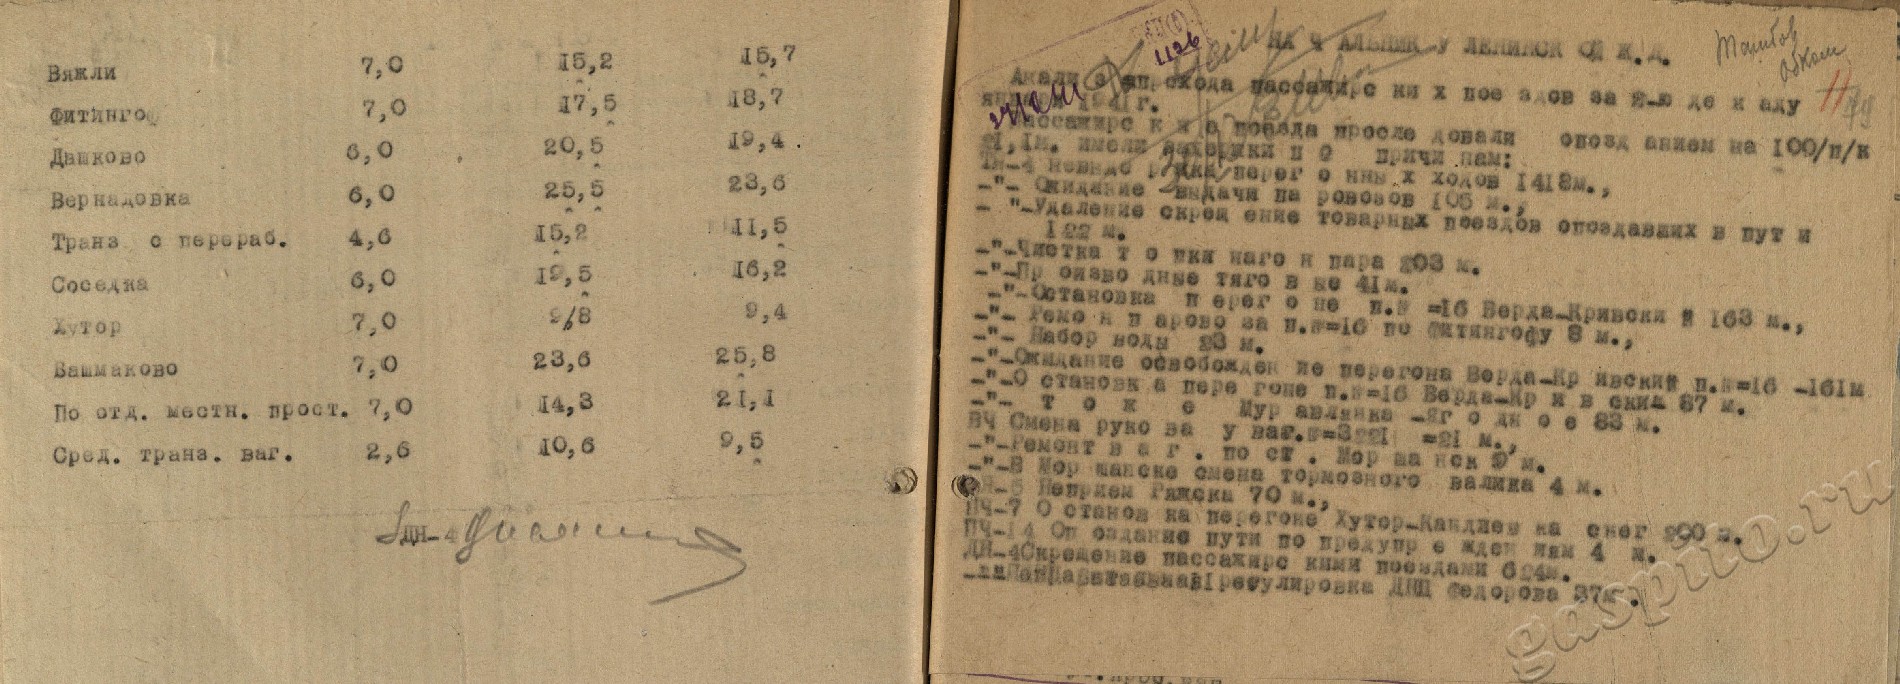 Вяжли 7,0 15,2 15,7
Фитингоф 7,0 17,5 18,7
Дашково 6,0 20,5 19,4
Вернадовка 6,0 25,5 23,6
Транз с перераб. 4,6 15,2 11,5
Соседка 6,0 19,5 16,2
Хутор 7,0 9,8 9,4
Башмаково 7,0 23,6 25,8
По отд. местн. прост. 7,0 14,3 21,1
Сред. транз. ваг. 2,6 10,6 9,5
ДН-4
1126
НА Ч АЛЬНИК У ЛЕНИНСК ОЙ Ж.Д.
Тамбов
Обком
Анализ прохода пассажирс ки х пое здов за 2-ю де к аду
января 1941г.
11
Пассажирс к и е поезда просле довали опозд анием на 100/п/к
21,1м. имели задержки п о причи нам:
ТЧ-4 невыде ржка перег о нны х ходов 1418м.,
-"- Ожидание выдачи па ровозов 105 м.,
- "-Удаление скрещ ение товарных поездов опоздавших в пут и
122 м.
-"-Чистка т о пки наго н пара 203 м.
-"-Пр оизво дные тяго в ые 41м.
-"-Остановка п ерег о не п.№=16 Верда-Кривски й 163 м.,
-"- Ремо н п арово за п.№=16 по Фитингофу 8 м.,
-"- Набор воды 23 м.
-"-Ожидание освобожден ие перегона Верда-Кр ивский п.№=16 -161м
-"-О становк а пере гоне п.№=16 Верда-Кр и в ский 87 м.
-"- Т о ж е Мур авлянка -Яг о дн о е 83 м.
ВЧ Смена рука ва у ваг.№=3221 =21 м.,
-"-Ремонт в а г . по ст . Мор ша нск 9 м.
-"-В Мор шанске смена тормозного валика 4 м.
ДН-5 Неприем Ряжска 70 м.,
ПЧ-7 О станов ка перегоне Хутор-Кандиев ка снег 200 м.
ПЧ-14 Оп оздание пути по предупр е жден иям 4 м.
ДН-4Скрещение пассажирс кими поездами 624м.
регулировка ДНЦ Федорова 37м.
gaspito.ru